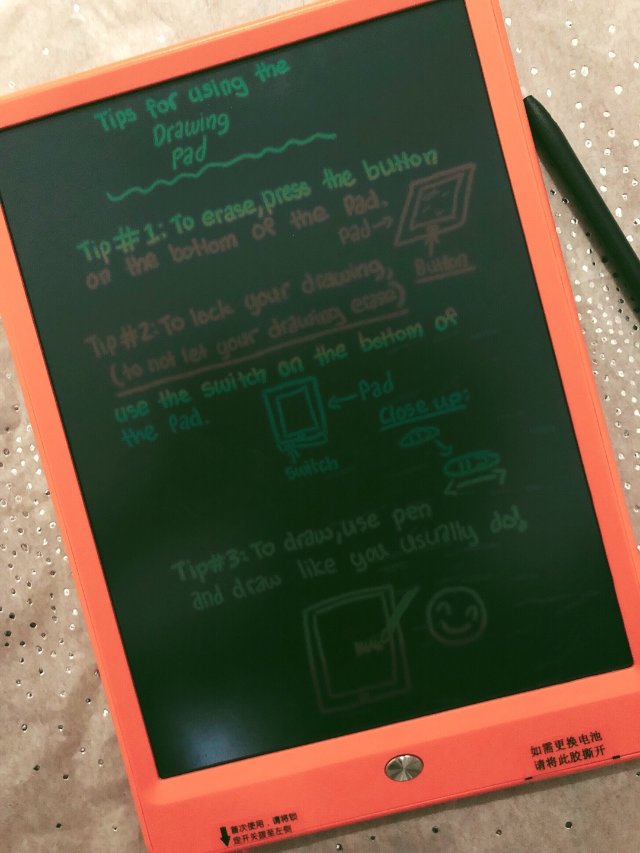 Tips for using the
Drawing
Pad
Tip #1: To erase, press the button
on the bottom of the Pad.
Pad→
Button
Tip #2: To lock your drawing,
(to not let your drawing erase)
use the switch on the bottom of
the Pad.
←Pad
switch
Close up:
Tip #3: To draw, use pen
and draw like you usually do!
首次使用，请将锁
定开关拨至左侧
如需更换电池
请将此胶撕开